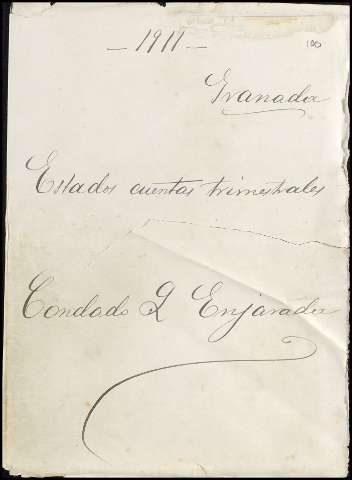 - 1911 -
100
Granada
Estados cuentas trimestrales
Condado L Enjarada